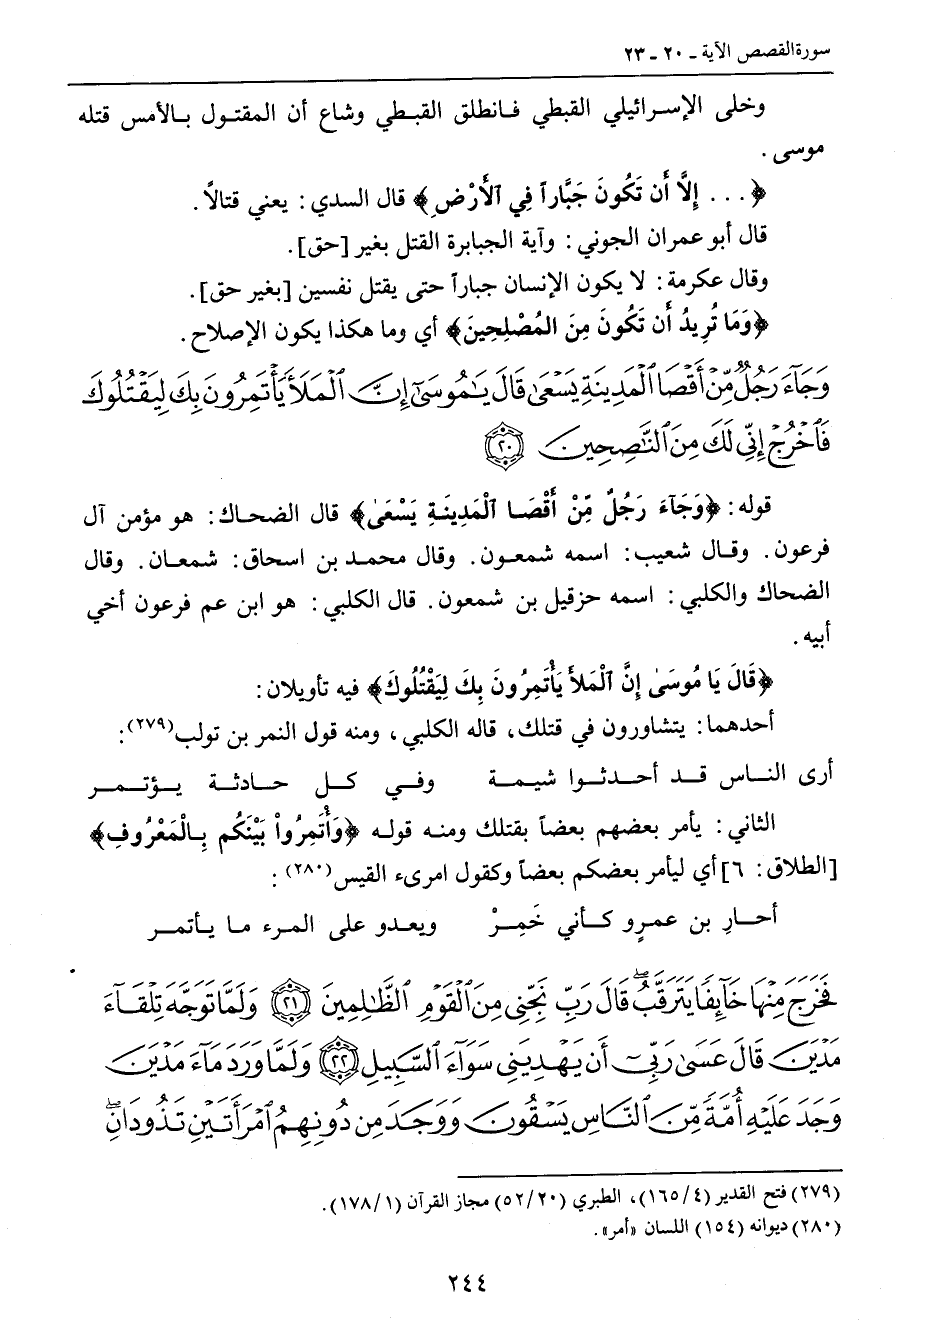 سورة القصص الآية ـ ٢٠ ـ ٢٣
وخلى الإسرائيلي القبطي فانطلق القبطي وشاع أن المقتول بالأمس قتله
موسى .
﴿. . . إِلَّا أَن تَكُونَ جَبَّاراً فِي ٱلْأَرْضِ﴾ قال السدي : يعني قتالاً .
قال أبو عمران الجوني : وآية الجبابرة القتل بغير [حق] .
وقال عكرمة : لا يكون الإنسان جباراً حتى يقتل نفسين [بغير حق] .
﴿وَمَا تُرِيدُ أَن تَكُونَ مِنَ المُصْلِحِينَ﴾ أي وما هكذا يكون الإصلاح .
وَجَآءَ رَجُلٌ مِّنْ أَقْصَا ٱلْمَدِينَةِ يَسْعَىٰ قَالَ يَٰمُوسَىٰٓ إِنَّ ٱلْمَلَأَ يَأْتَمِرُونَ بِكَ لِيَقْتُلُوكَ
فَٱخْرُجْ إِنِّى لَكَ مِنَ ٱلنَّٰصِحِينَ ٢٠
قوله : ﴿وَجَآءَ رَجُلٌ مِّنْ أَقْصَا ٱلْمَدِينَةِ يَسْعَىٰ﴾ قال الضحاك : هو مؤمن آل
فرعون . وقال شعيب : اسمه شمعون . وقال محمد بن اسحاق : شمعان . وقال
الضحاك والكلبي : اسمه حزقيل بن شمعون . قال الكلبي : هو ابن عم فرعون أخي
أبيه .
﴿قَالَ يَا مُوسَىٰ إِنَّ ٱلْمَلأَ يَأْتَمِرُونَ بِكَ لِيَقْتُلُوكَ﴾ فيه تأويلان :
أحدهما : يتشاورون في قتلك ، قاله الكلبي ، ومنه قول النمر بن تولب(٢٧٩) :
أرى الناس قد أحدثوا شيمة وفي كل حادثة يؤتمر
الثاني : يأمر بعضهم بعضاً بقتلك ومنه قوله ﴿وَأْتَمِرُواْ بَيْنَكُم بِالْمَعْرُوفِ﴾
[الطلاق : ٦] أي ليأمر بعضكم بعضاً وكقول امرىء القيس(٢٨٠) :
أحارِ بن عمرٍو كأني خَمِرْ ويعدو على المرء ما يأتمر
فَخَرَجَ مِنْهَا خَآئِفًا يَتَرَقَّبُ ۖ قَالَ رَبِّ نَجِّنِى مِنَ ٱلْقَوْمِ ٱلظَّٰلِمِينَ ٢١ وَلَمَّا تَوَجَّهَ تِلْقَآءَ
مَدْيَنَ قَالَ عَسَىٰ رَبِّىٓ أَن يَهْدِيَنِى سَوَآءَ ٱلسَّبِيلِ ٢٢ وَلَمَّا وَرَدَ مَآءَ مَدْيَنَ
وَجَدَ عَلَيْهِ أُمَّةً مِّنَ ٱلنَّاسِ يَسْقُونَ وَوَجَدَ مِن دُونِهِمُ ٱمْرَأَتَيْنِ تَذُودَانِ ۖ
(٢٧٩) فتح القدير (١٦٥/٤) ، الطبري (٥٢/٢٠) مجاز القرآن (١٧٨/١) .
(٢٨٠) ديوانه (١٥٤) اللسان «أمر» .
٢٤٤